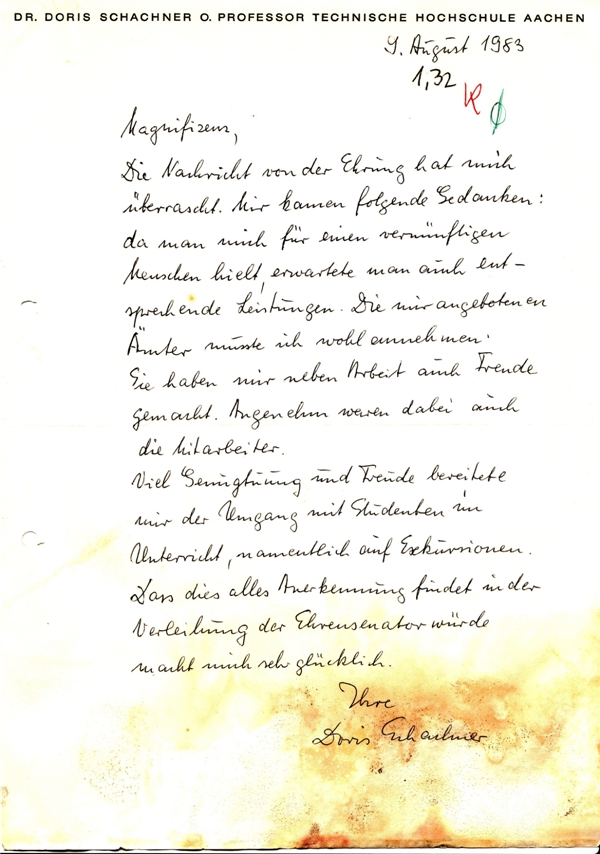 DR. DORIS SCHACHNER O. PROFESSOR TECHNISCHE HOCHSCHULE AACHEN
9. August 1983
1,32
Magnifizenz,
Die Nachricht von der Ehrung hat mich
überrascht. Mir kamen folgende Gedanken:
da man mich für einen vernünftigen
Menschen hielt, erwartete man auch ent-
sprechende Leistungen. Die mir angebotenen
Ämter musste ich wohl annehmen.
Sie haben mir neben Arbeit auch Freude
gemacht. Angenehm waren dabei auch
die Mitarbeiter.
Viel Genugtuung und Freude bereitete
mir der Umgang mit Studenten im
Unterricht, namentlich auf Exkursionen.
Dass dies alles Anerkennung findet in der
Verleihung der Ehrensenatorwürde
macht mich sehr glücklich.
Ihre
Doris Schachner